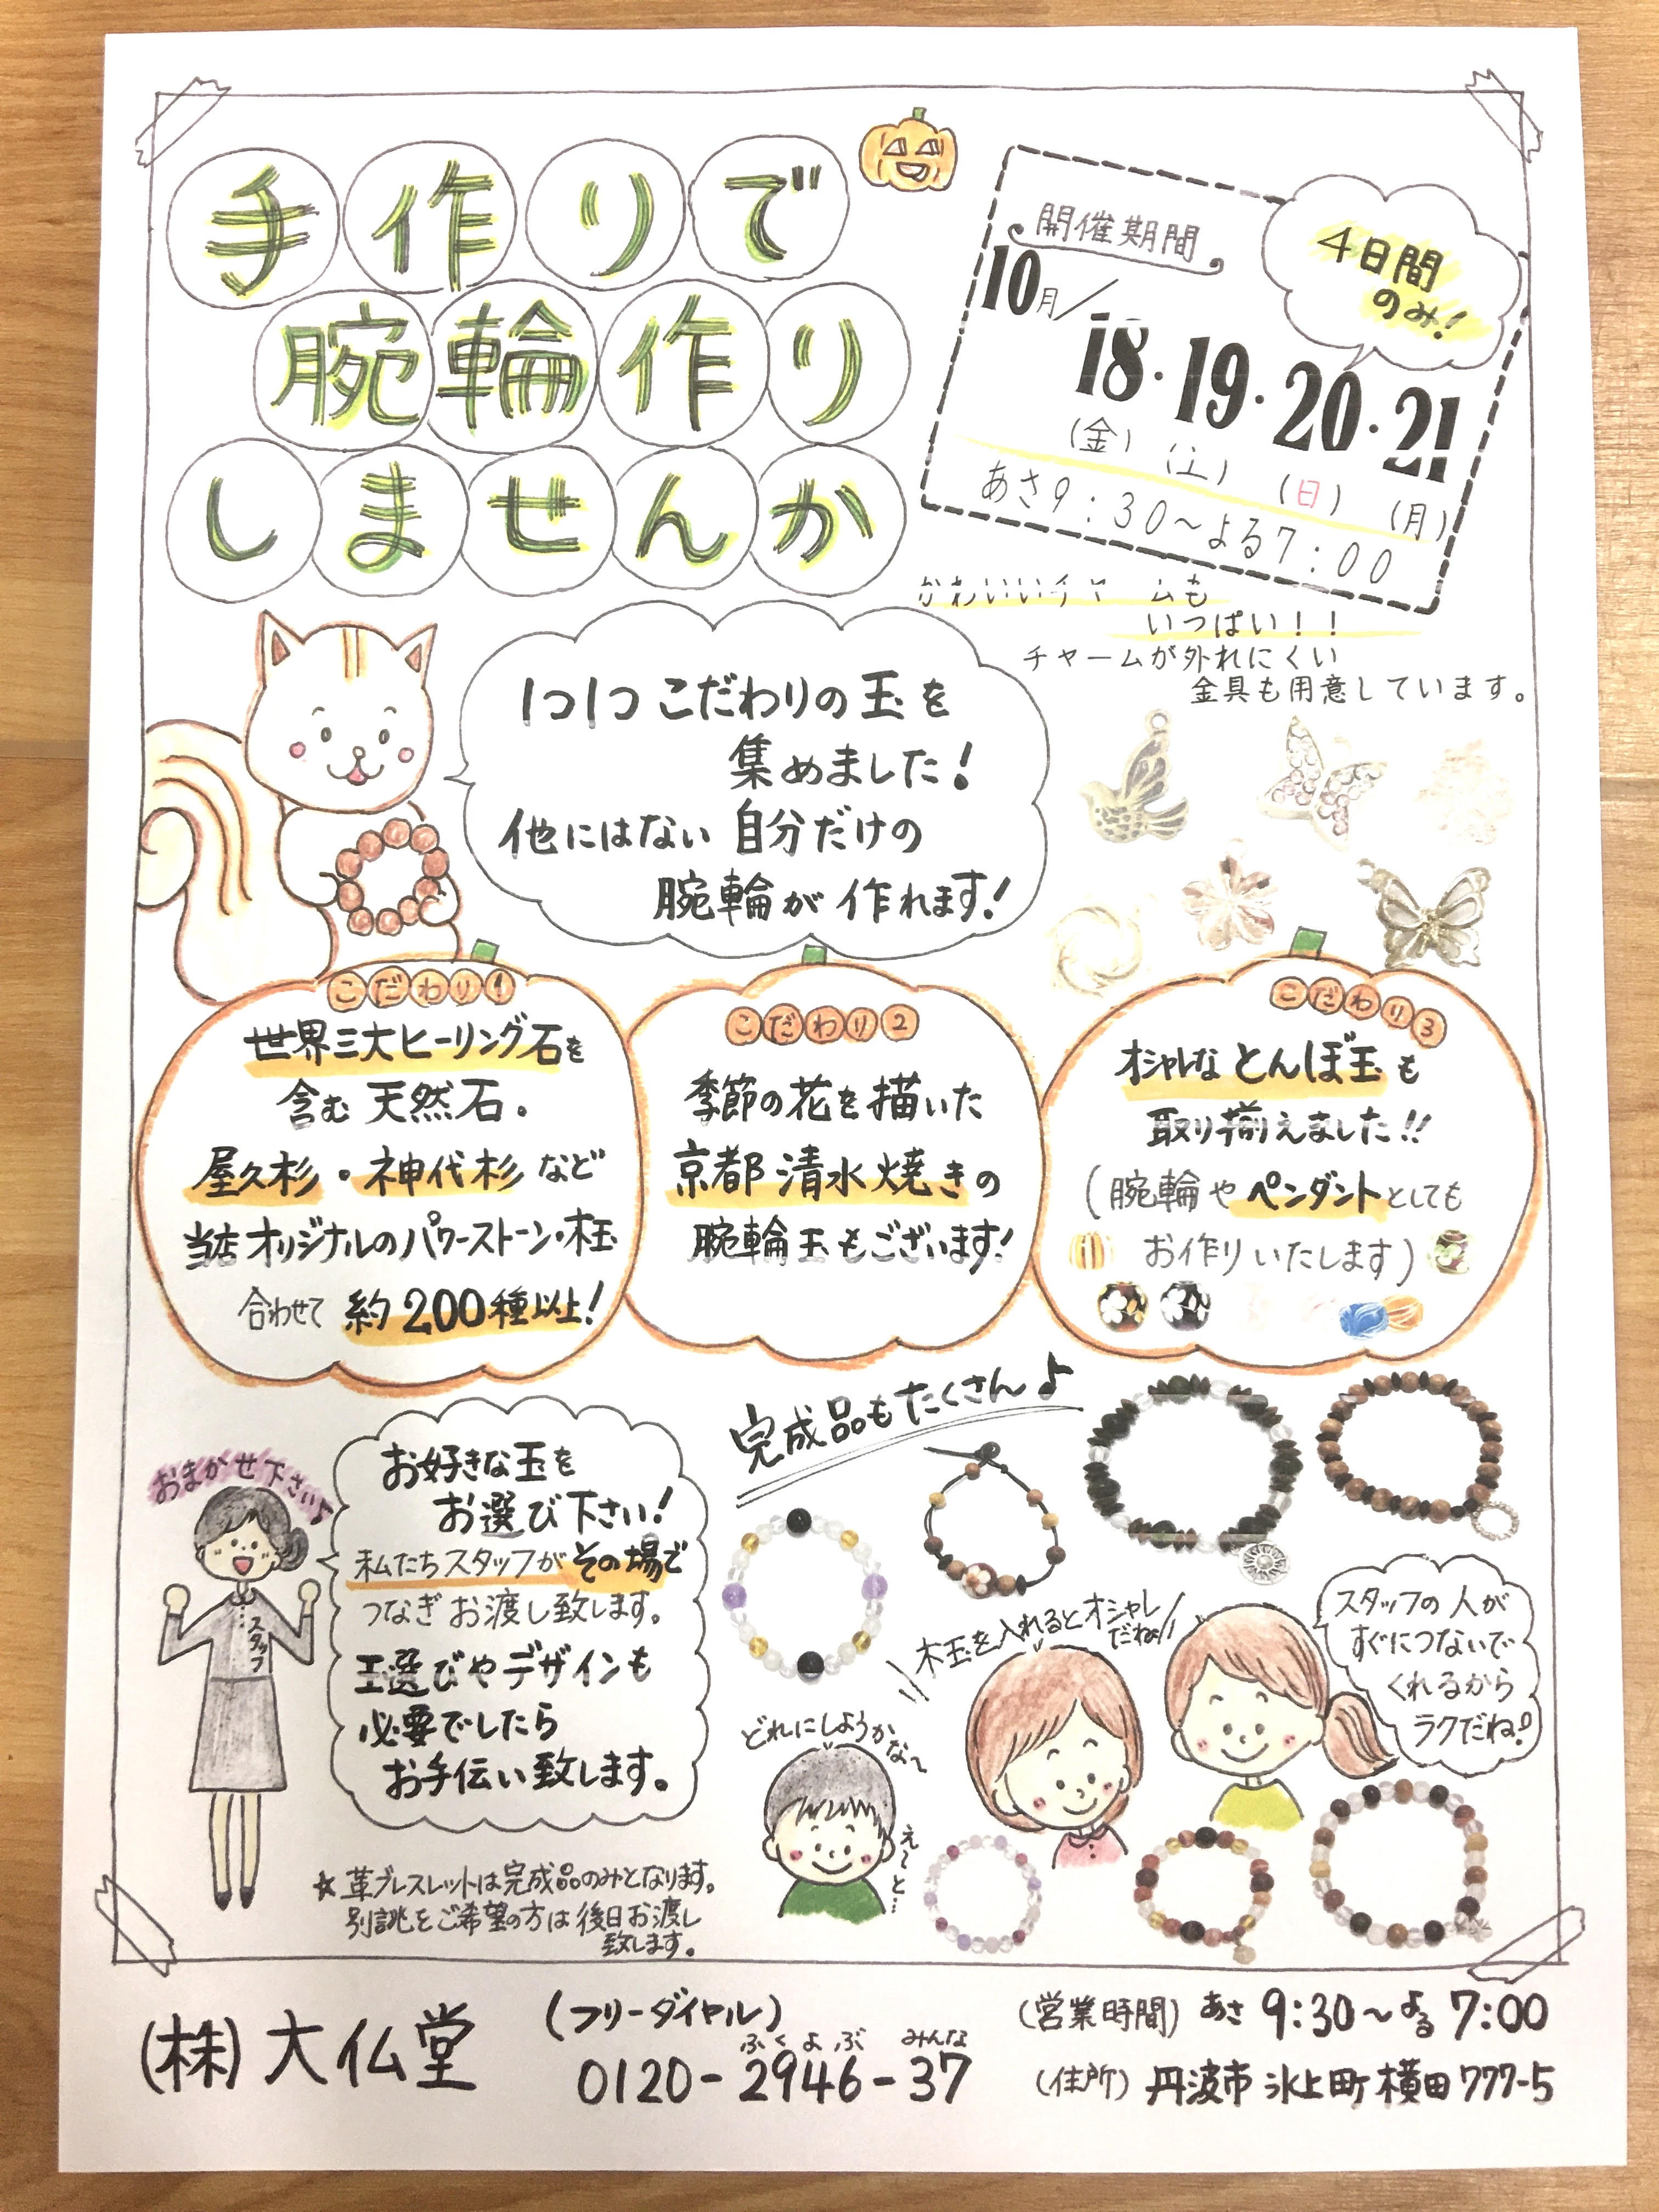 手作りで
腕輪作り
しませんか
開催期間
4日間
のみ!
10月/
18・19・20・21
(金) (土) (日) (月)
あさ9:30〜よる7:00
かわいいチャームも
いっぱい!!
チャームが外れにくい
金具も用意しています。
1つ1つこだわりの玉を
集めました!
他にはない自分だけの
腕輪が作れます!
こだわり1
世界三大ヒーリング石を
含む天然石。
屋久杉・神代杉など
当店オリジナルのパワーストーン・木玉
合わせて約200種以上!
こだわり2
季節の花を描いた
京都清水焼きの
腕輪玉もございます!
こだわり3
オシャレなとんぼ玉も
取り揃えました!!
(腕輪やペンダントとしても
お作りいたします)
おまかせ下さい♪
スタッフ
お好きな玉を
お選び下さい!
私たちスタッフがその場で
つなぎお渡し致します。
玉選びやデザインも
必要でしたら
お手伝い致します。
★革ブレスレットは完成品のみとなります。
別誂をご希望の方は後日お渡し
致します。
完成品もたくさん♪
木玉を入れるとオシャレ
だね!
スタッフの人が
すぐにつないで
くれるから
ラクだね!
どれにしようかな〜
え〜と…
(株)大仏堂
(フリーダイヤル)
ふくよぶ みんな
0120-2946-37
(営業時間) あさ 9:30〜よる 7:00
(住所) 丹波市氷上町横田777-5